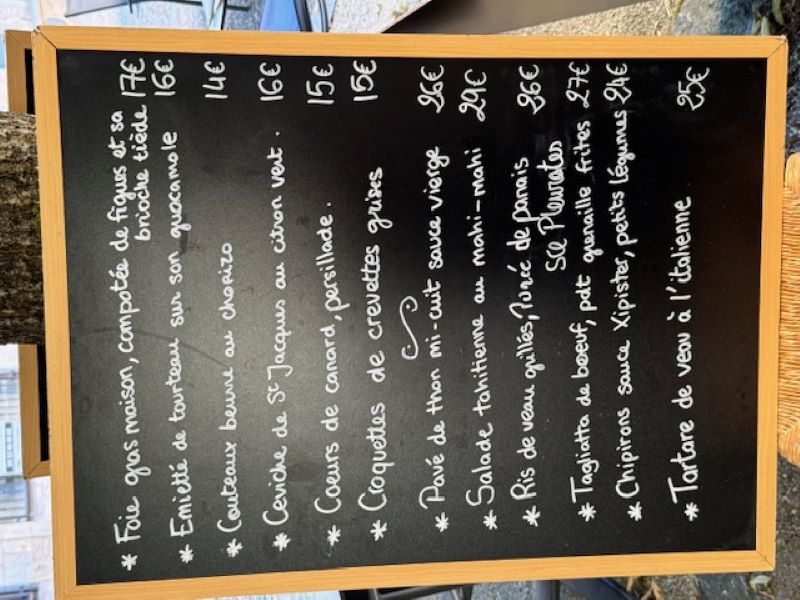 * Foie gras maison, compotée de figues et sa 17€
brioche tiède
* Emietté de tourteau sur son guacamole 16€
* Couteaux beurre au chorizo 14€
* Ceviche de St Jacques au citron vert. 16€
* Coeurs de canard, persillade. 15€
* Croquettes de crevettes grises 15€
* Pavé de thon mi-cuit sauce vierge 26€
* Salade tahitienne au mahi-mahi 29€
* Ris de veau grillés, Purée de panais 26€
Sce Pleurotes
* Tagliatta de boeuf, pdt grenaille frites 27€
* Chipirons sauce Xipister, petits légumes 24€
* Tartare de veau à l'italienne 25€